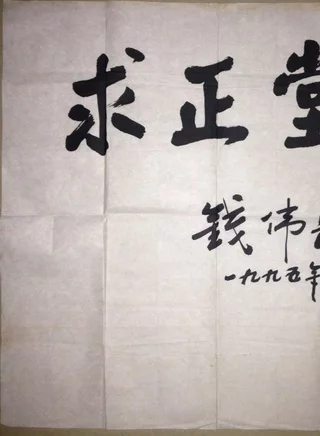 求正堂
钱伟
一九九五年